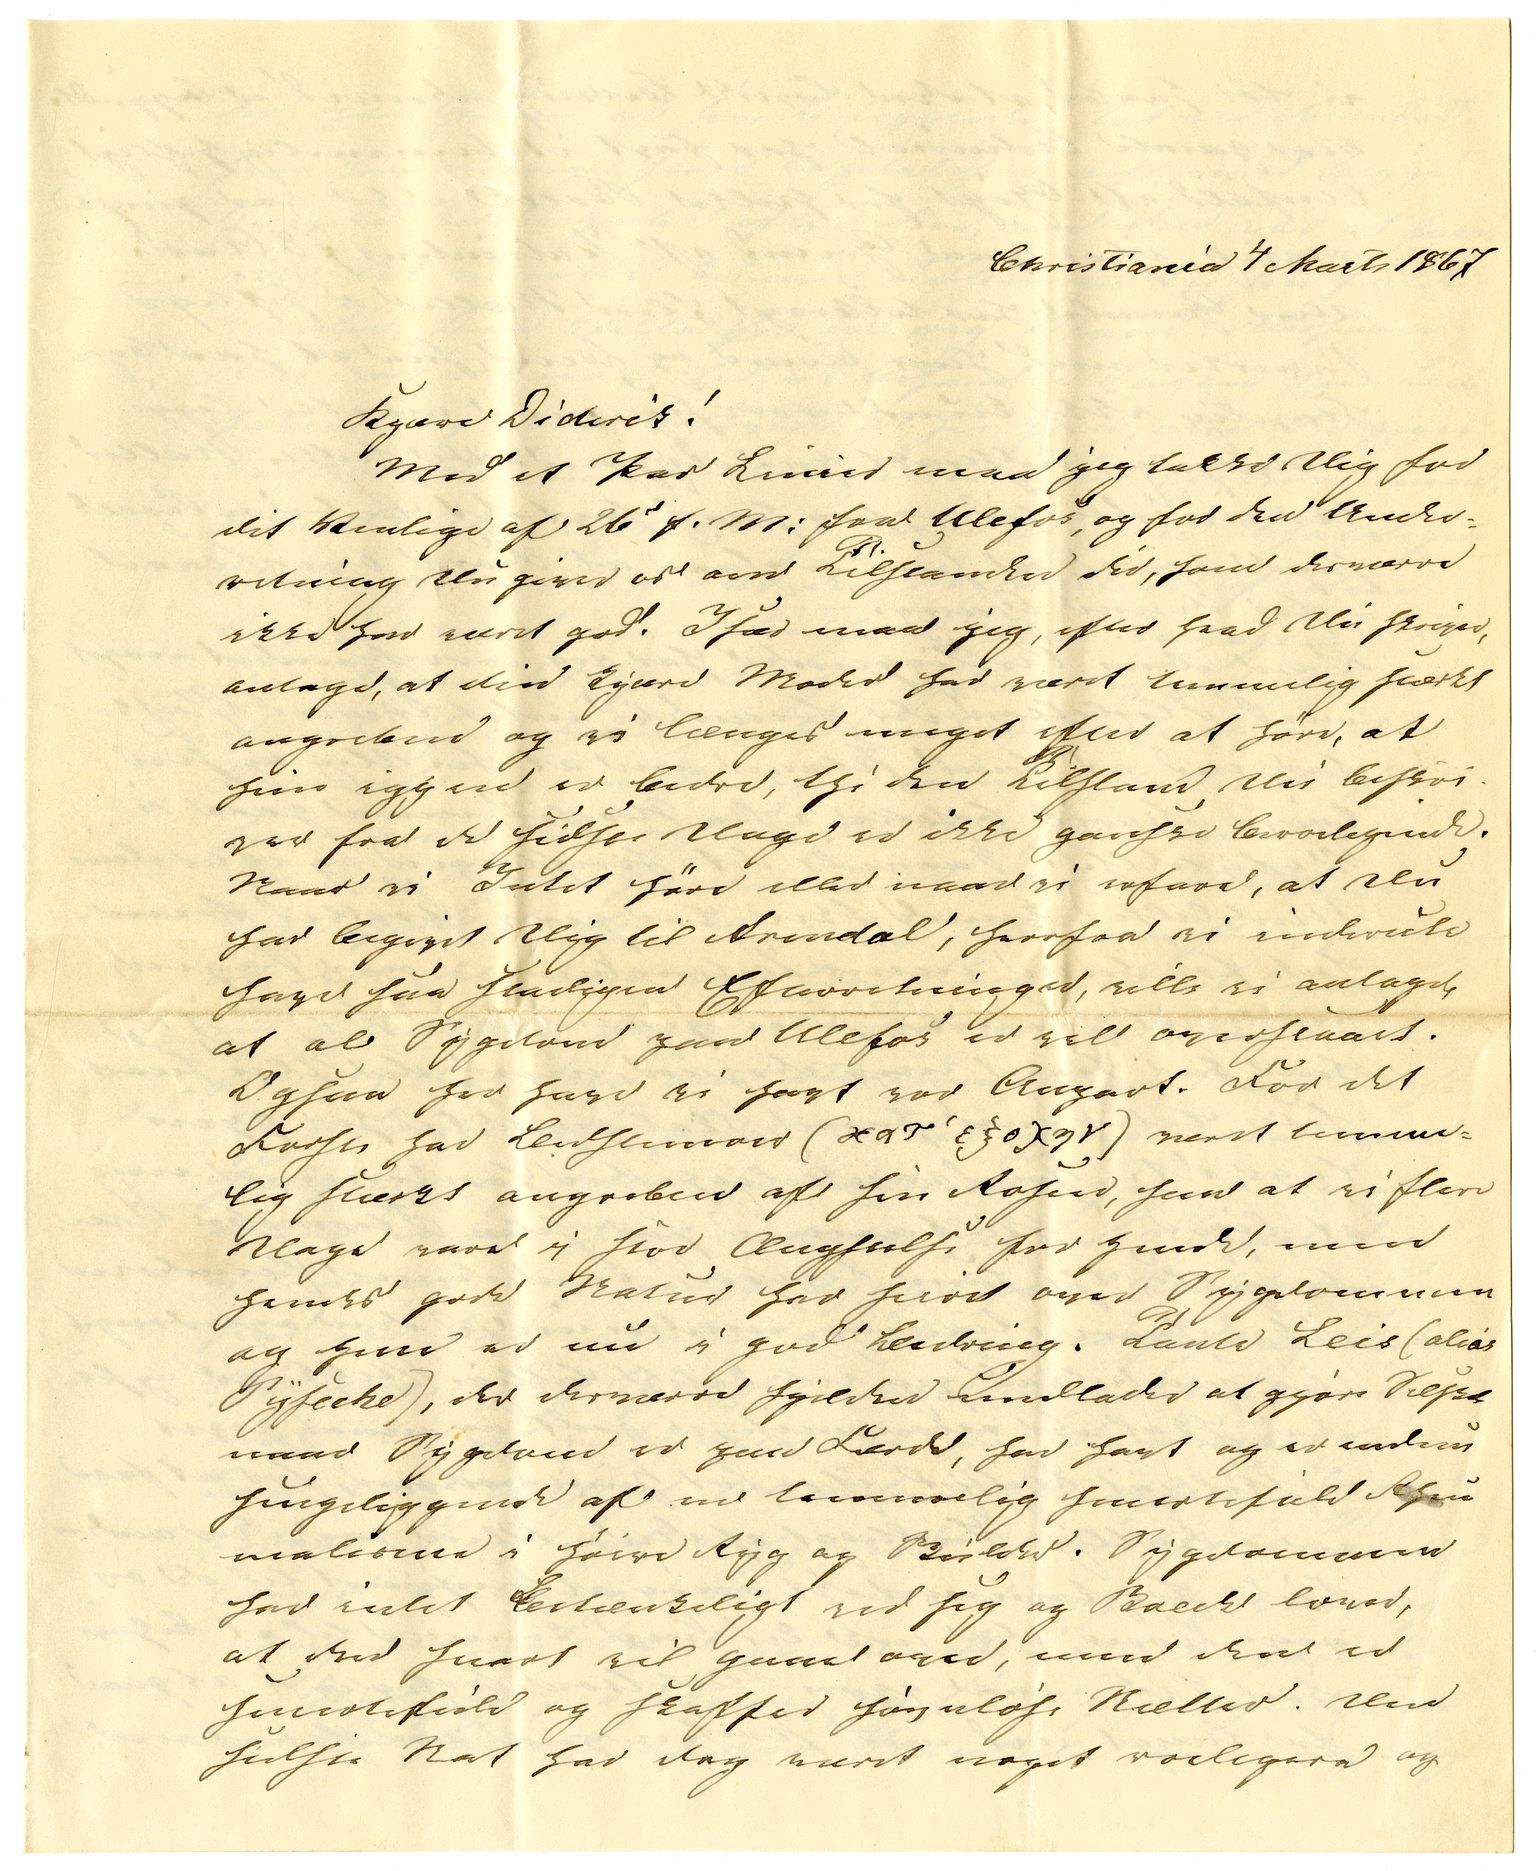 Christiania 4 Marts 1867
Kjære Diderik!
Med et Par Linier maa jeg takke Dig for
dit Venlige af 26' f. M: fra Ulefos, og for den Under=
retning Du giver os om Tilstanden der, som desværre
ikke har været god. Især maa jeg, efter hvad Du skriver,
antage, at din kjære Moder har været temmelig stærkt
angreben og vi længes meget efter at høre, at
hun igjen er bedre, thi den Tilstand Du beskri-
ver fra de sidste Dage er ikke ganske beroligende.
Naar vi Intet høre eller naar vi erfare, at Du
har begivet Dig til Arendal, hvorfra vi indirecte
have saa stadigen Efterretninger, ville vi antage,
at al Sygdom paa Ulefos er vel overstaaet.
Ogsaa her have vi havt vor Anpart. For det
Første har Bedstemoer (κατ' ἐξοχην) været temme=
lig stærkt angreben af sin Rosen, saa at vi flere
Dage vare i stor Ængstelse for hende, men
hendes gode Natur har seiret over Sygdommen
og hun er nu i god Bedring. Tante Leis (alias
), der desværre sjelden undlader at gjøre Selskab
naar Sygdom er paa Færde, har havt og er endnu
sengeliggende af en temmelig smertefuld Rheu
matisme i høire Ryg og Skulder. Sygdommen
har intet Betænkeligt ved sig og Boeck lover,
at den snart vil gaae over, men den er
smertefuld og skaffer søvnløse Nætter. Den
sidste Nat har dog været noget roligere og